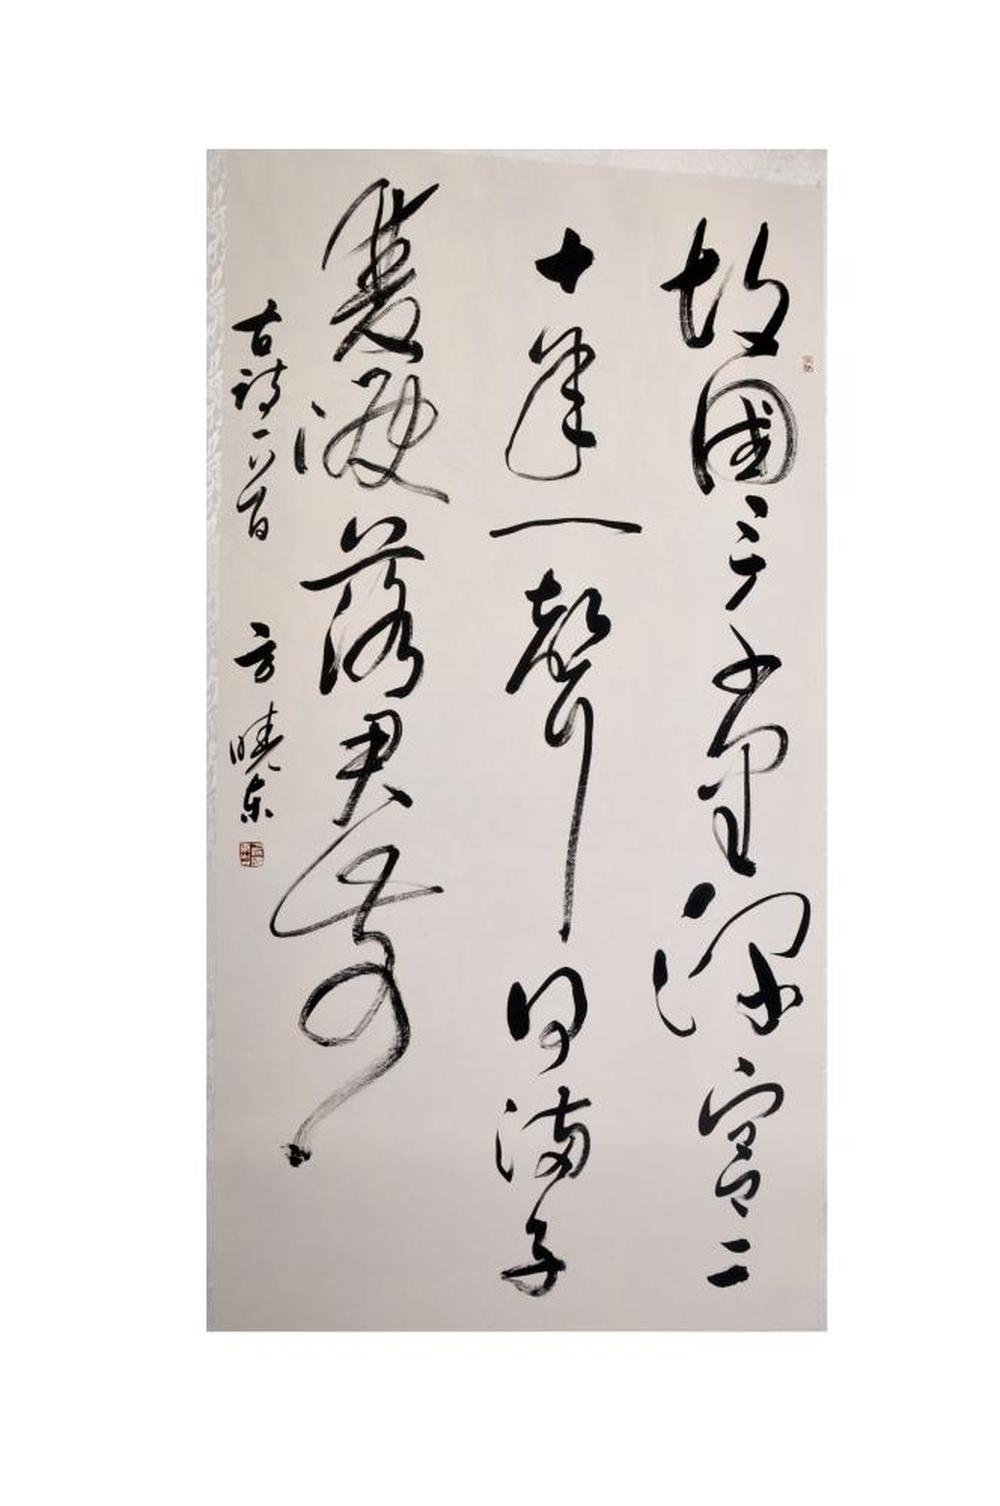 故国三千里深宫二
十年一聲何満子
雙淚落君前
古詩一首 方曉东